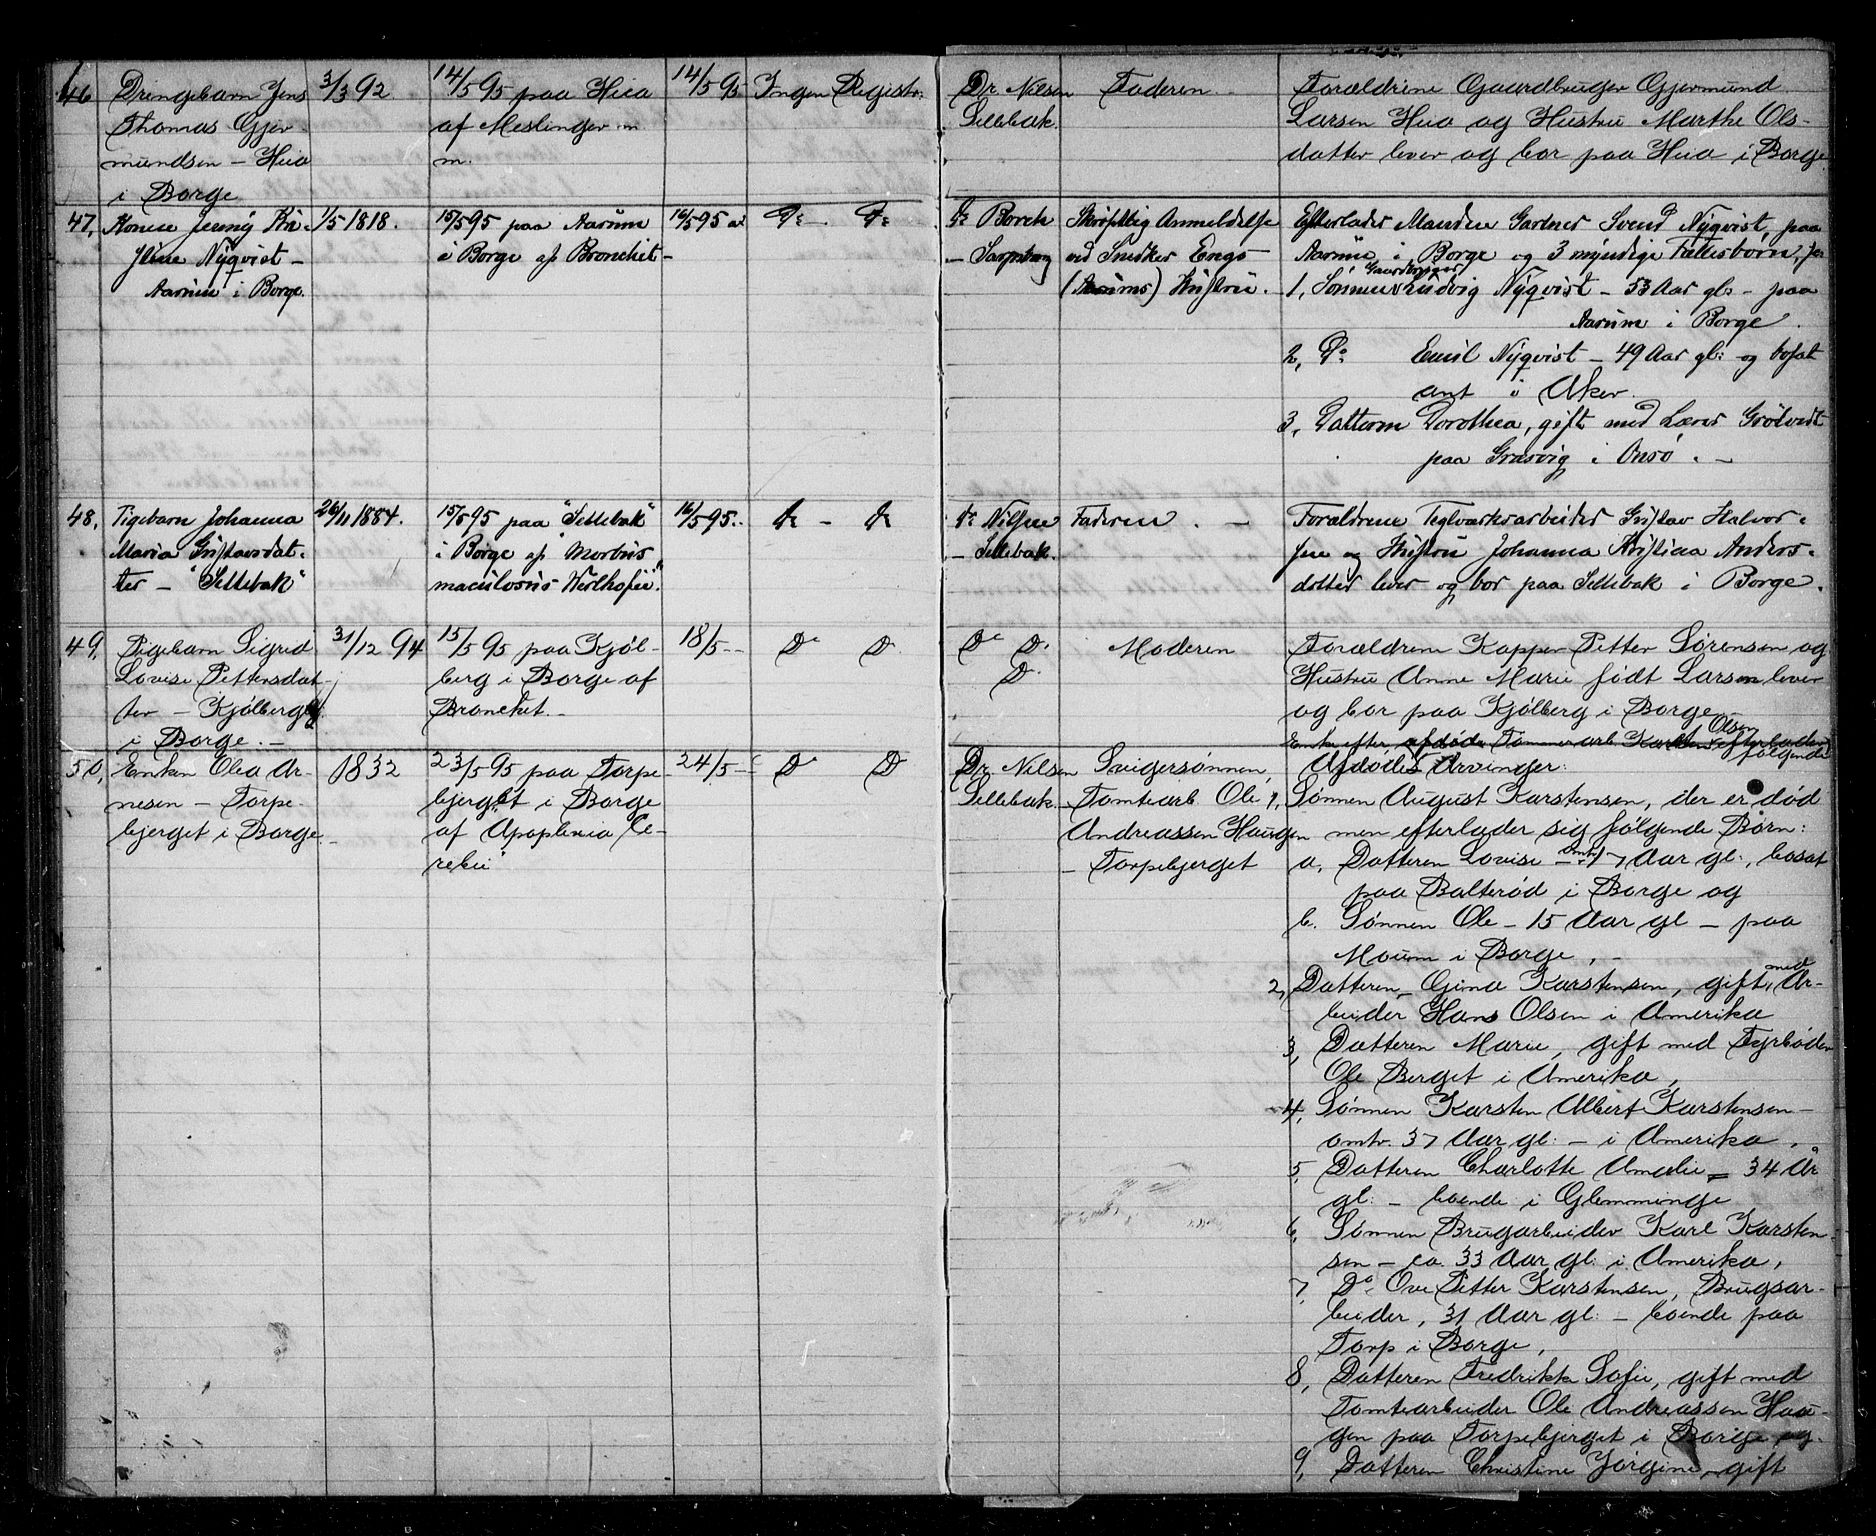 46 Drengebarn Jens
Thomas Gjer-
mundsen - Hua
i Borge
3/3 92.
14/5 95 paa Hua
af Meslinger m.
m.
14/5 95
Ingen Registr.
Dr. Nilsen
Sellebak.
Faderen
Forældrene Gaardbruger Gjermund
Larsen Hua og Hustru Marthe Ols-
datter lever og bor paa Hua i Borge
47, Konen Jenny Kri-
stine Nyqvist -
Aarum i Borge.
1/5 1818.
15/5 95 paa Aarum
i Borge af Bronchit -
16/5 95
Do - Do
Dr Borch
- Sarpsborg
Skriftlig Anmeldelse
ved Snedker Engs
(Aarums) Hustru.
Efterlader Manden Gartner Svend Nyqvist, paa
Aarum i Borge og 3 myndige Fællesbørn,
Gaardbruger
1, Sønnen Ludvig Nyqvist - 53 Aar gl. - paa
Aarum i Borge.
2, Do Emil Nyqvist - 49 Aar gl: og bosat
i Aker.
3, Datteren Dorothea, gift med Lærer Grøtvedt
paa Græsvig i Onsø. -
48, Pigebarn Johanna
Maria Gustavsdat-
ter - "Sellebak"
26/11 1884.
15/5 95 paa "Sellebak"
i Borge af "Morbus
maculosus Werlhofii".
16/5 95.
Do - Do
Dr Nilsen
- Sellebak.
Faderen. -
Forældrene Teglværksarbeider Gustav Halvor-
sen og Hustru Johanna Kristina Anders-
datter lever og bor paa Sellebak i Borge.
49, Pigebarn Sigrid
Lovise Pettersdat-
ter - Kjølberg
i Borge. -
31/12 94
15/5 95 paa Kjøl-
berg i Borge af
Bronchit. -
18/5 -
Do Do
Do Do
Do
Moderen
Forældrene Kapper Petter Sørensen og
Hustru Anne Marie født Larsen lever
og bor paa Kjølberg i Borge -
50, Enken Olea Ar-
nesen - Torpe-
bjerget i Borge.
1832
23/5 95 paa Torpe-
bjerget i Borge
af Apoplexia Ce-
rebri"
24/5 -
Do Do
Dr. Nilsen
Sellebak.
Svigersønnen,
Tomtearb. Ole
Andreassen Haugen
- Torpebjerget
Olsen
Enke efter afdøde Tømmerarb. Karsten efterlader
følgende
Afdødes Arvinger:
1, Sønnen August Karstensen, der er død
men efterlader sig følgende Børn:
a, Datteren Lovise - omtr 17 Aar gl:, bosat
paa Balterød i Borge og
b. Sønnen Ole - 15 Aar gl - paa
Moum i Borge, -
2, Datteren Gina Karstensen, gift med Ar-
beider Hans Olsen i Amerika
3, Datteren Marie, gift med Fyrbøder
Ole Berget i Amerika,
4, Sønnen Karsten Albert Karstensen -
omtr. 37 Aar gl: - i Amerika,
5, Datteren Charlotte Amalie - 34 År
gl: - boende i Glemminge
6, Sønnen Brugarbeider Karl Karsten-
sen - ca. 33 Aar gl: i Amerika,
7, Do Ove Petter Karstensen, Brugsar-
beider, 31 Aar gl: - boende paa
Torp i Borge,
8, Datteren Fredrikke Sofie, gift med
Tomtearbeider Ole Andreassen Hau-
gen paa Torpebjerget i Borge og
9, Datteren Christine Jørgine, gift